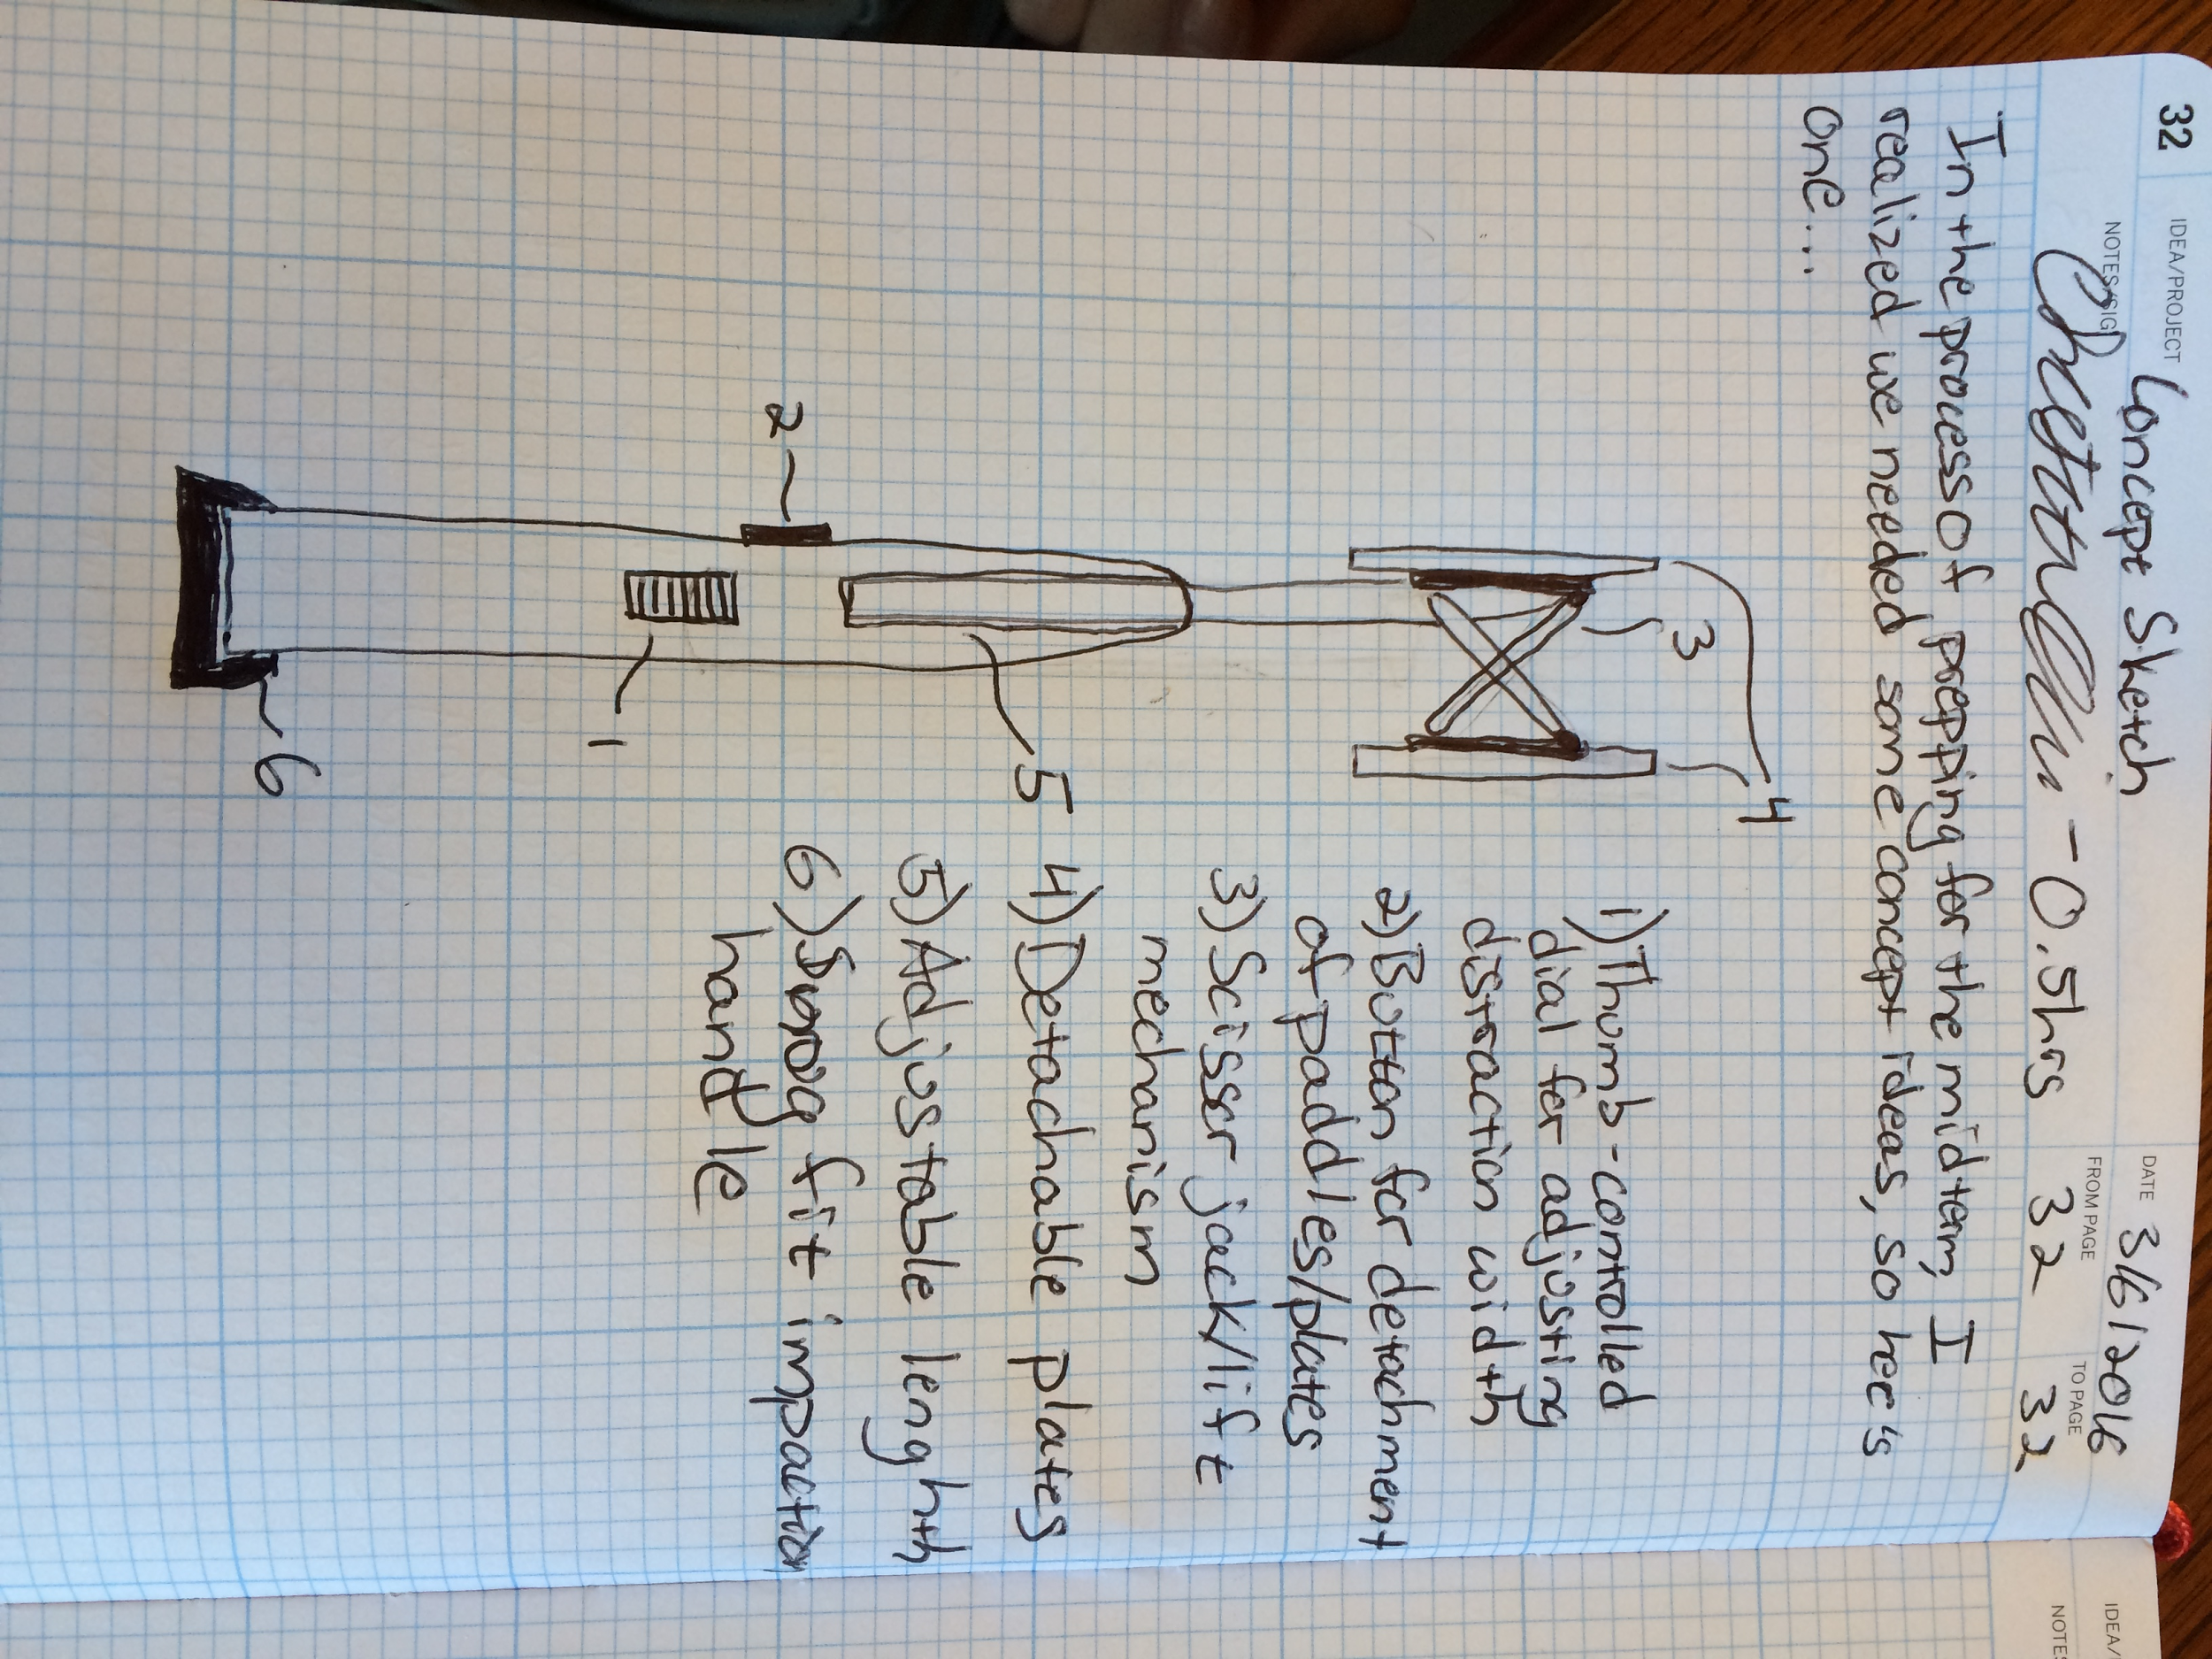 32
IDEA/PROJECT Concept Sketch
DATE 3/6/2016
NOTES/SIG
- 0.5hrs
FROM PAGE 32
TO PAGE 32
In the process of prepping for the midterm, I
realized we needed some concept ideas, so here's
one...
4
3
5
2
1
6
1) Thumb-controlled
dial for adjusting
distraction width
2) Button for detachment
of paddles/plates
3) Scisser jack/lift
mechanism
4) Detachable plates
5) Adjustable lenghth
6) Snug fit impaction
handle
IDEA/
NOTES